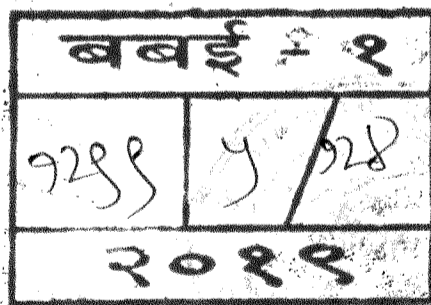 बबई - १
१२९९ ५ / १२४
२०१९